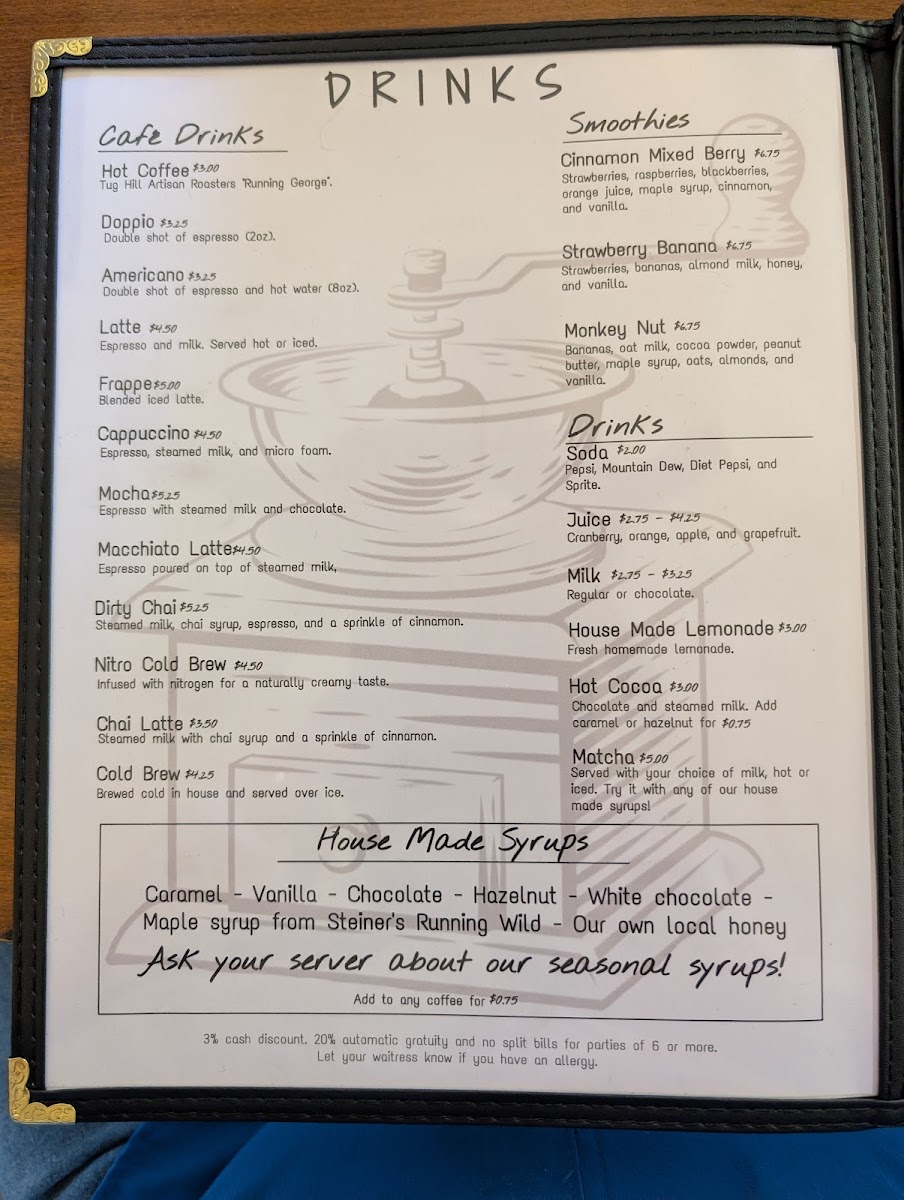 DRINKS
Cafe Drinks
Hot Coffee $3.00
Tug Hill Artisan Roasters "Running George".
Doppio $3.25
Double shot of espresso (2oz).
Americano $3.25
Double shot of espresso and hot water (8oz).
Latte $4.50
Espresso and milk. Served hot or iced.
Frappe $5.00
Blended iced latte.
Cappuccino $4.50
Espresso, steamed milk, and micro foam.
Mocha $5.25
Espresso with steamed milk and chocolate.
Macchiato Latte $4.50
Espresso poured on top of steamed milk,
Dirty Chai $5.25
Steamed milk, chai syrup, espresso, and a sprinkle of cinnamon.
Nitro Cold Brew $4.50
Infused with nitrogen for a naturally creamy taste.
Chai Latte $3.50
Steamed milk with chai syrup and a sprinkle of cinnamon.
Cold Brew $4.25
Brewed cold in house and served over ice.
Smoothies
Cinnamon Mixed Berry $6.75
Strawberries, raspberries, blackberries,
orange juice, maple syrup, cinnamon,
and vanilla.
Strawberry Banana $6.75
Strawberries, bananas, almond milk, honey,
and vanilla.
Monkey Nut $6.75
Bananas, oat milk, cocoa powder, peanut
butter, maple syrup, oats, almonds, and
vanilla.
Drinks
Soda $2.00
Pepsi, Mountain Dew, Diet Pepsi, and
Sprite.
Juice $2.75 - $4.25
Cranberry, orange, apple, and grapefruit.
Milk $2.75 - $3.25
Regular or chocolate.
House Made Lemonade $3.00
Fresh homemade lemonade.
Hot Cocoa $3.00
Chocolate and steamed milk. Add
caramel or hazelnut for $0.75
Matcha $5.00
Served with your choice of milk, hot or
iced. Try it with any of our house
made syrups!
House Made Syrups
Caramel - Vanilla - Chocolate - Hazelnut - White chocolate -
Maple syrup from Steiner's Running Wild - Our own local honey
Ask your server about our seasonal syrups!
Add to any coffee for $0.75
3% cash discount. 20% automatic gratuity and no split bills for parties of 6 or more.
Let your waitress know if you have an allergy.